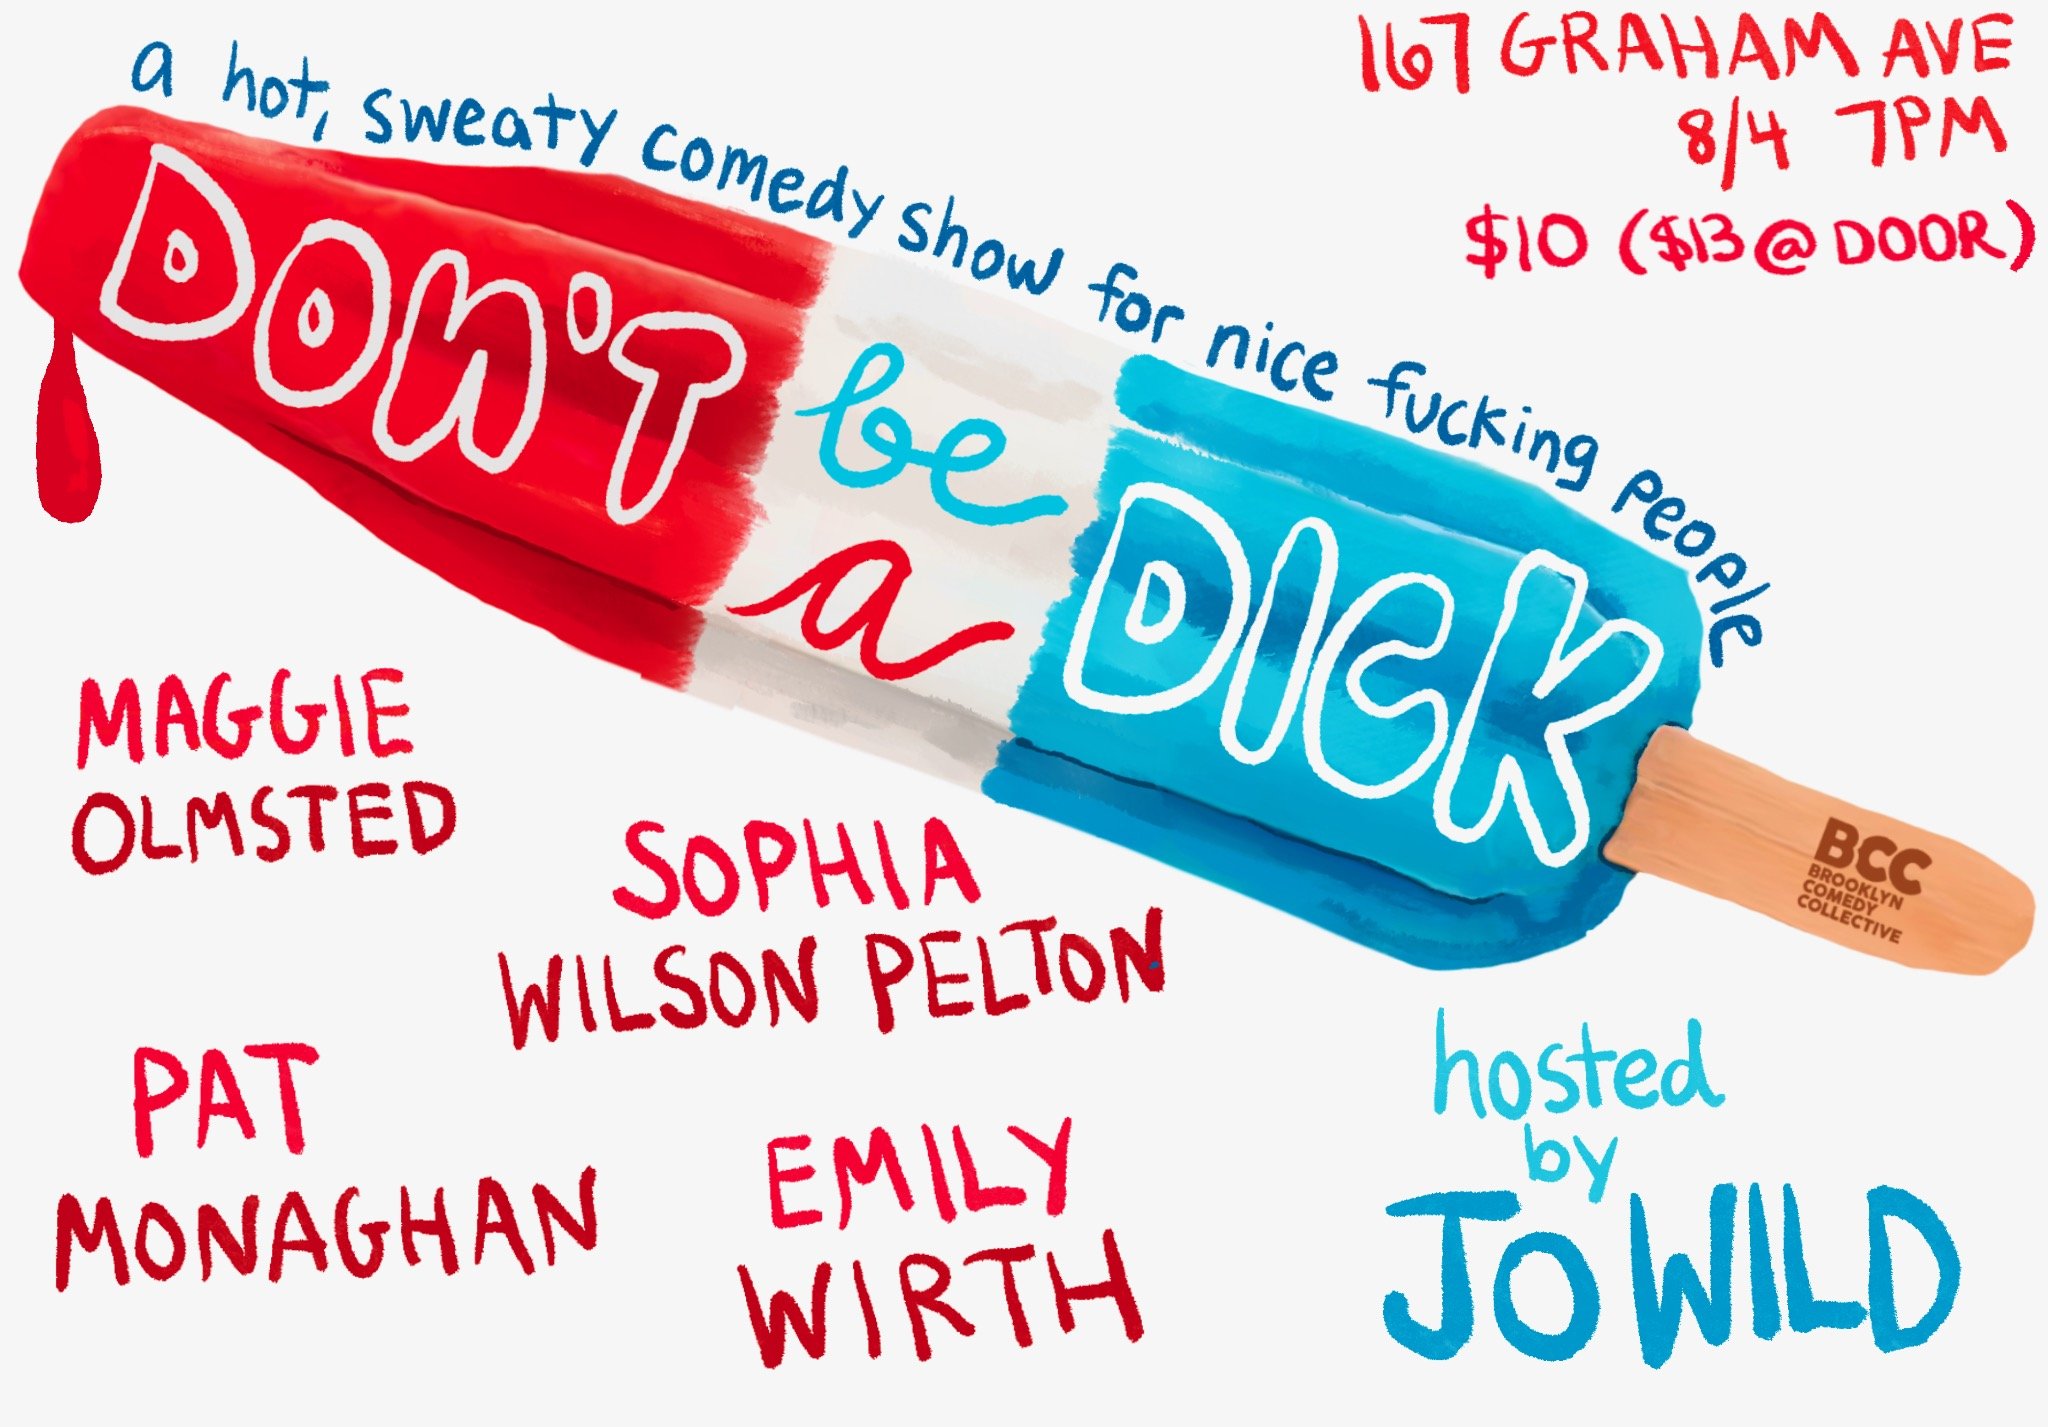 a hot, sweaty comedy show for nice fucking people
167 GRAHAM AVE
8/4 7PM
$10 ($13 @ DOOR)
DON'T
be
a
DICK
BCC
BROOKLYN
COMEDY
COLLECTIVE
MAGGIE
OLMSTED
SOPHIA
WILSON PELTON
PAT
MONAGHAN
EMILY
WIRTH
hosted
by
JO WILD